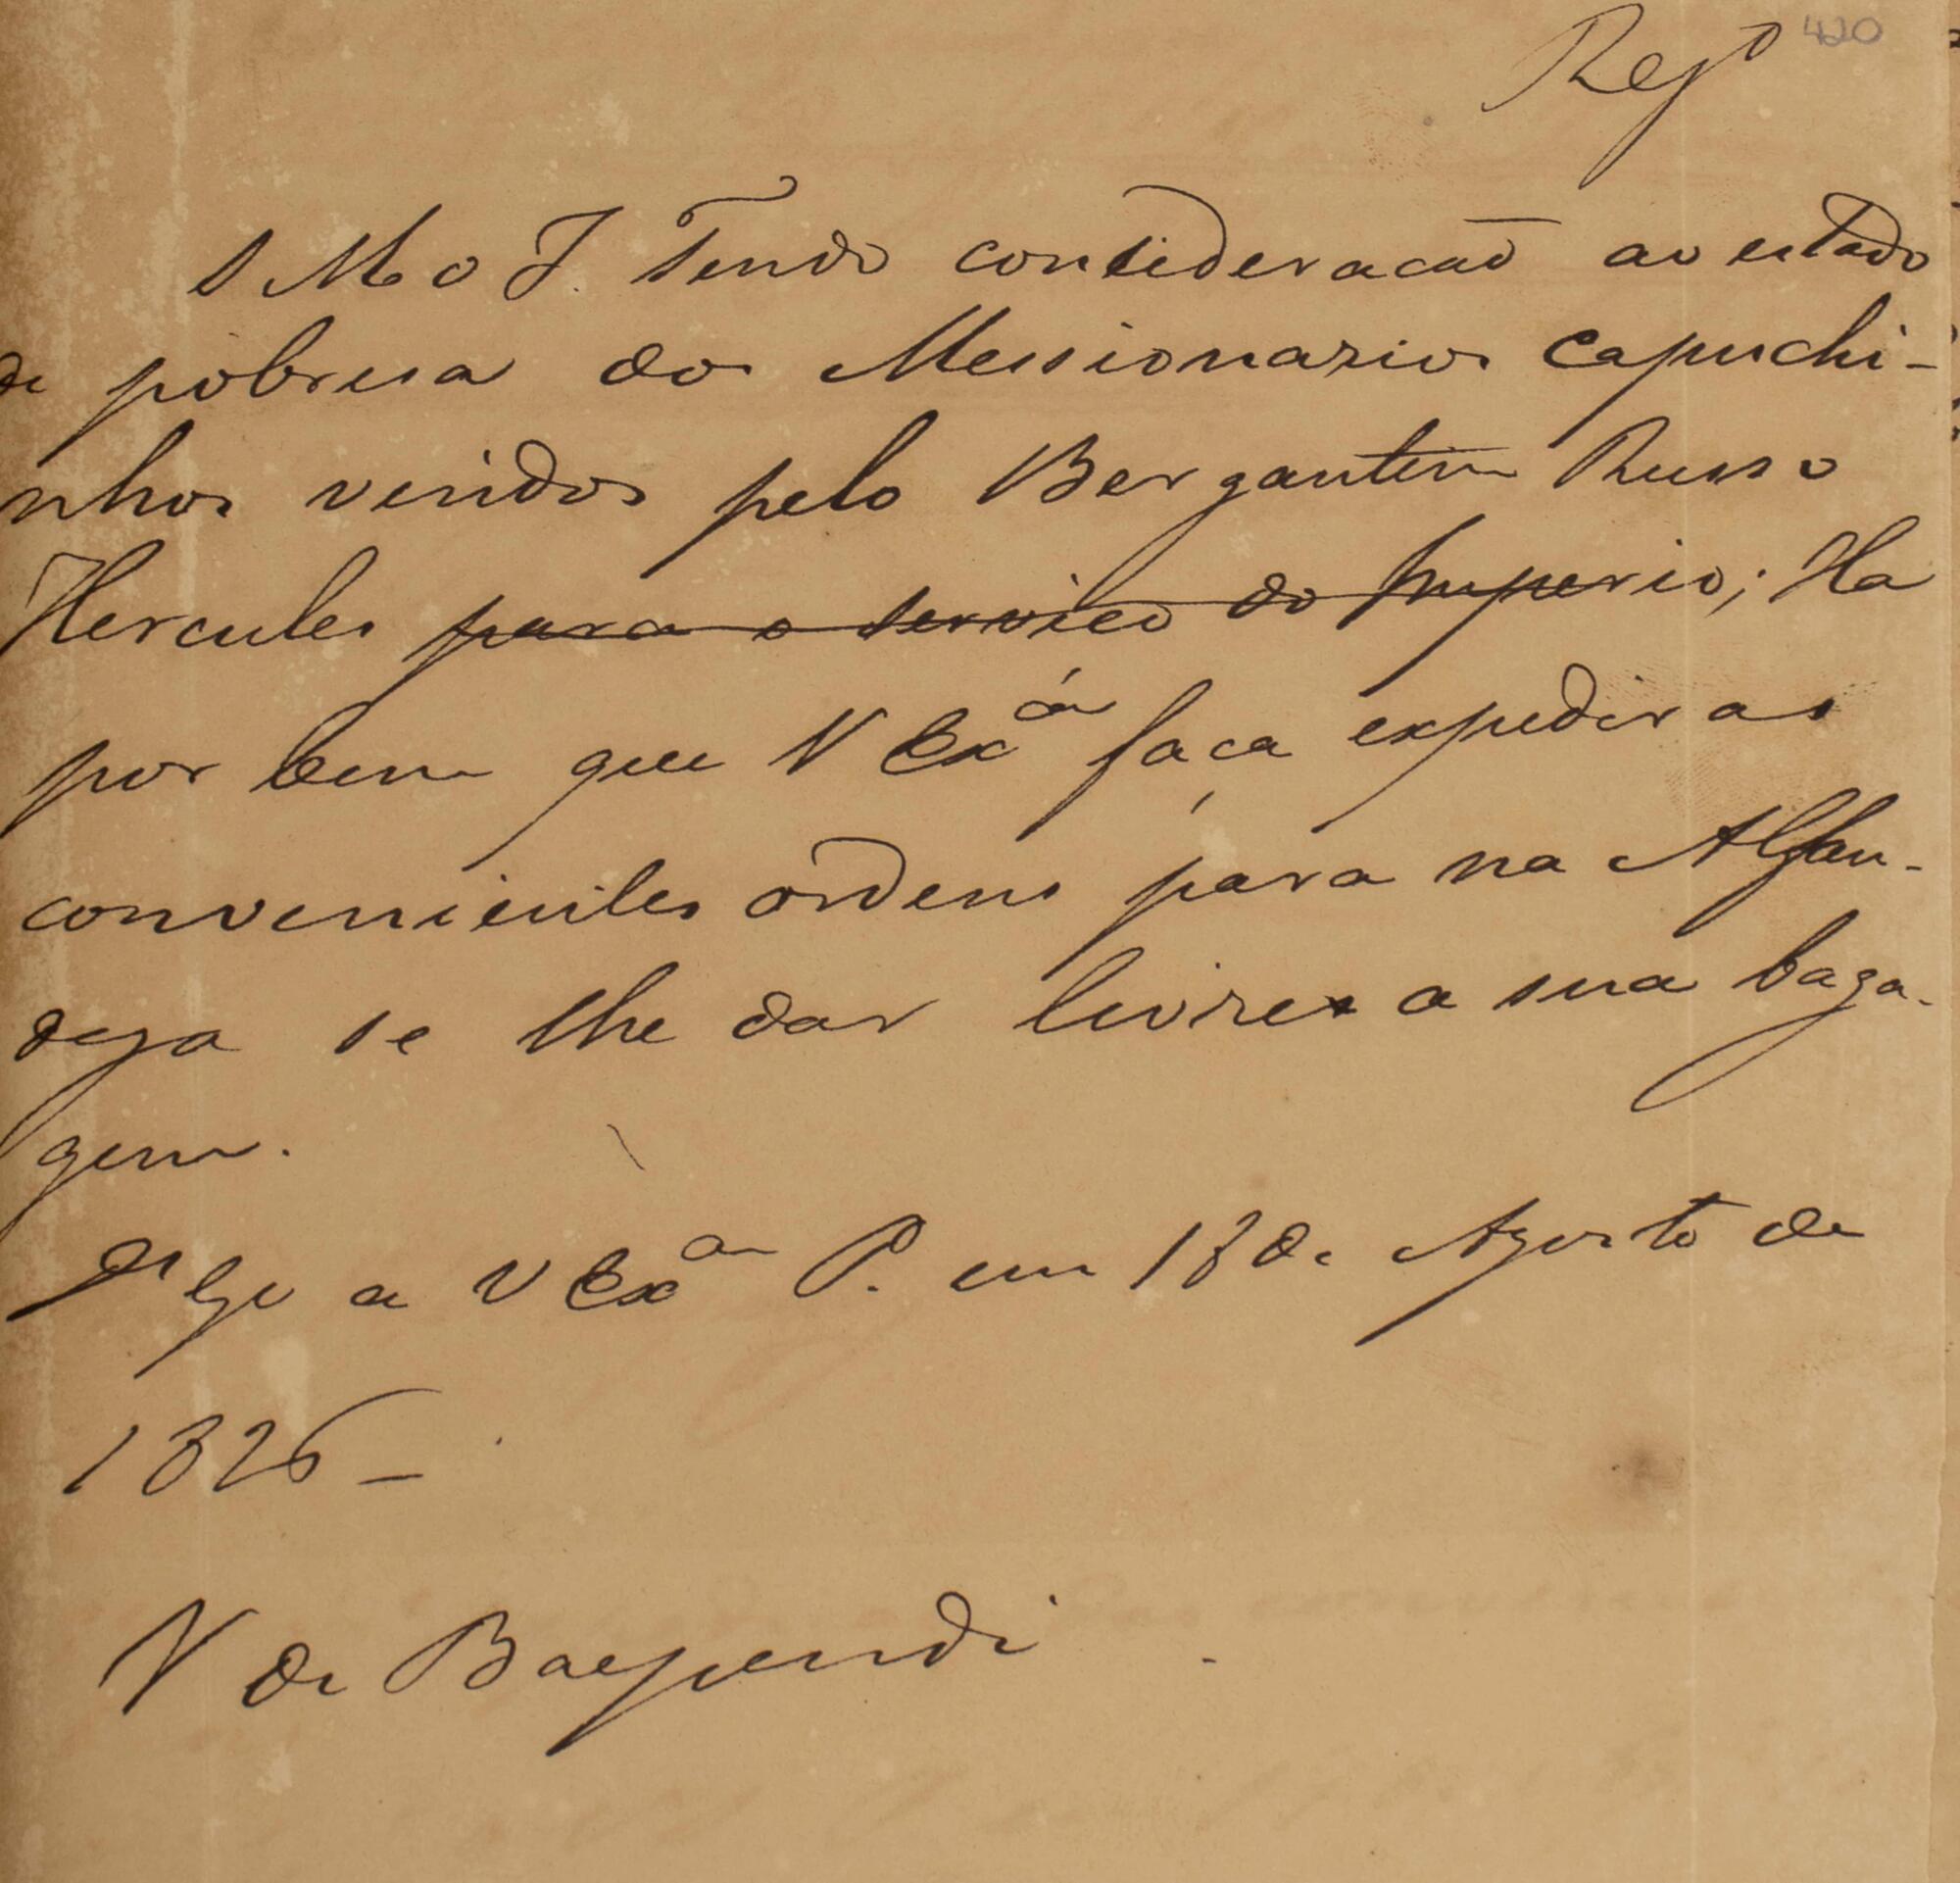 Reg.º 420
S M o I. Tendo consideracaõ ao estado
de pobresa dos Messionarios Capuchi-
nhos vindos pelo Bergantim Russo
Hercules para o serviço do Imperio; Ha
por bem que V Exª faça expedir as
convenientes ordens para na Alfan-
dega se lhe dar livre a sua baga-
gem.
Ds. Ge a V Exª P. em 18 de Agosto de
1826 –
V de Baependi